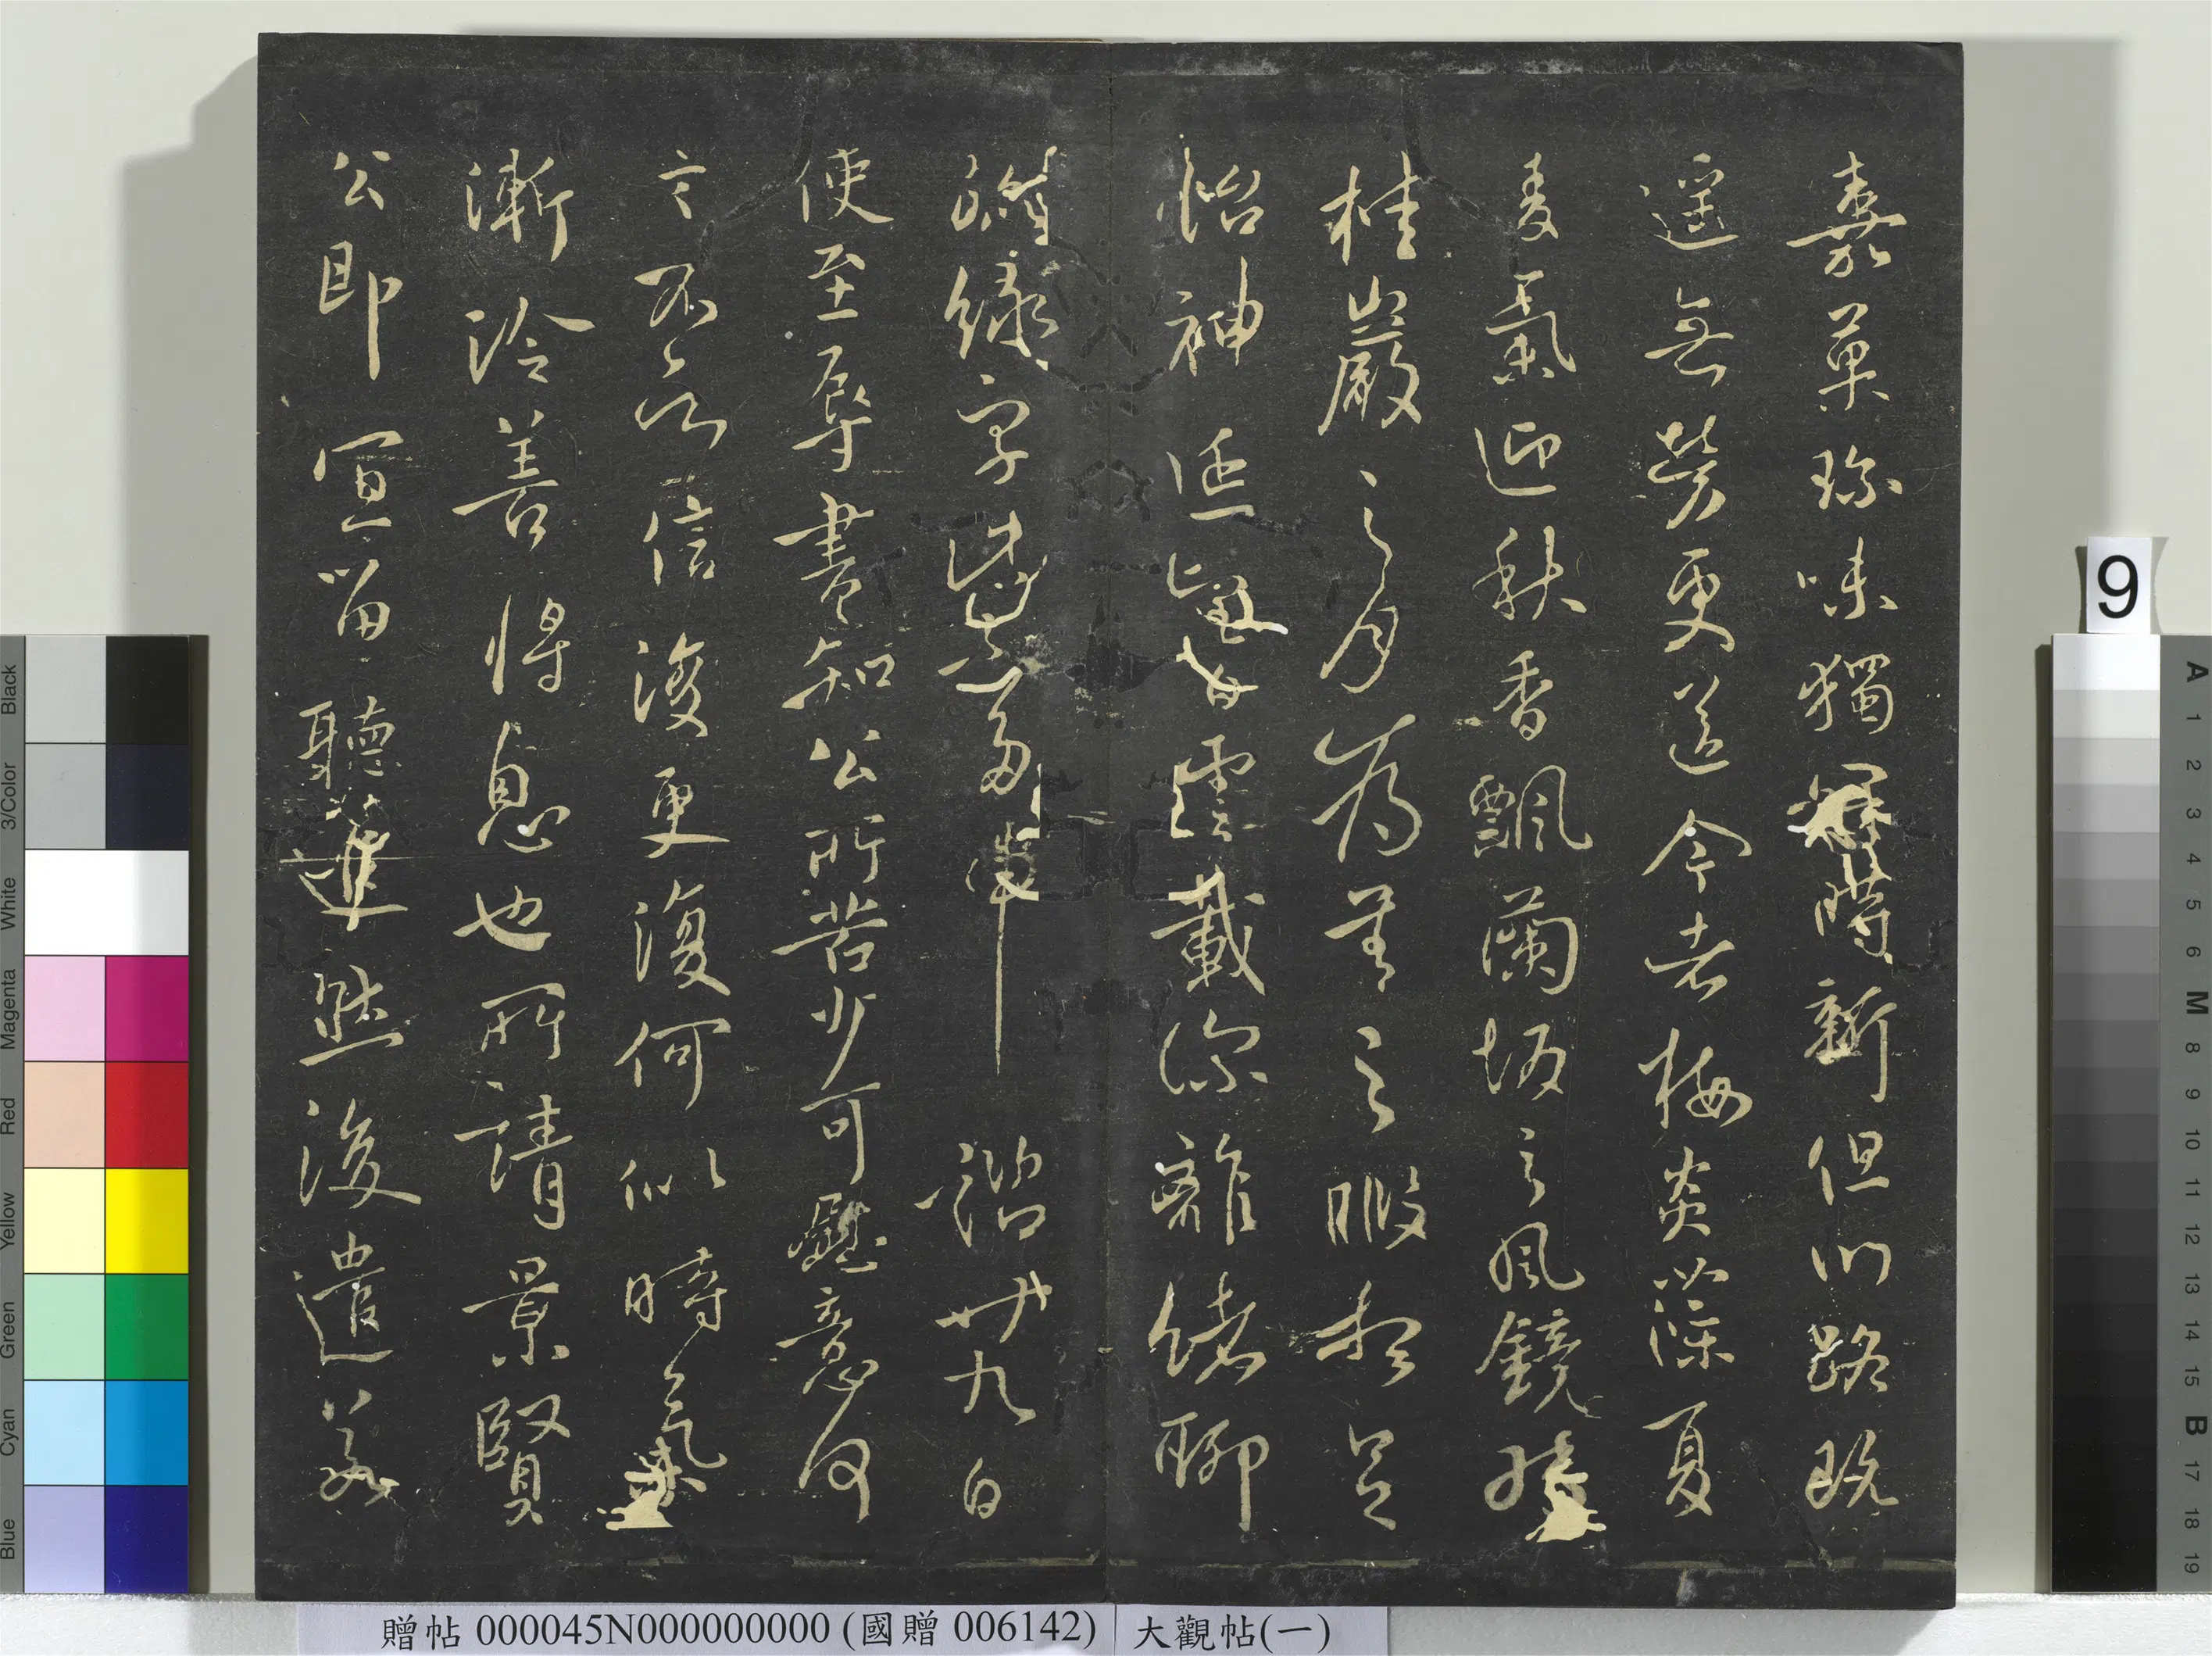 嘉菓珍味獨冠時新但川路既
遥無勞更送今者梅炎藻夏
麦氣迎秋香飄蘭坂之風鏡轉
桂巖之月為善之暇想足
怡神延望白雲載深離緒聊
綠字多 諮廿九日
使至辱書知公所苦少可慰意何
言不信後更復何似時氣
漸冷善將息也所請景賢
公即宜留聽進然後遣若
9
贈帖 000045N000000000 (國贈 006142) 大觀帖(一)
Black
3/Color
White
Magenta
Red
Yellow
Green
Cyan
Blue
A 1 2 3 4 5 6 M 8 9 10 11 12 13 14 15 B 17 18 19